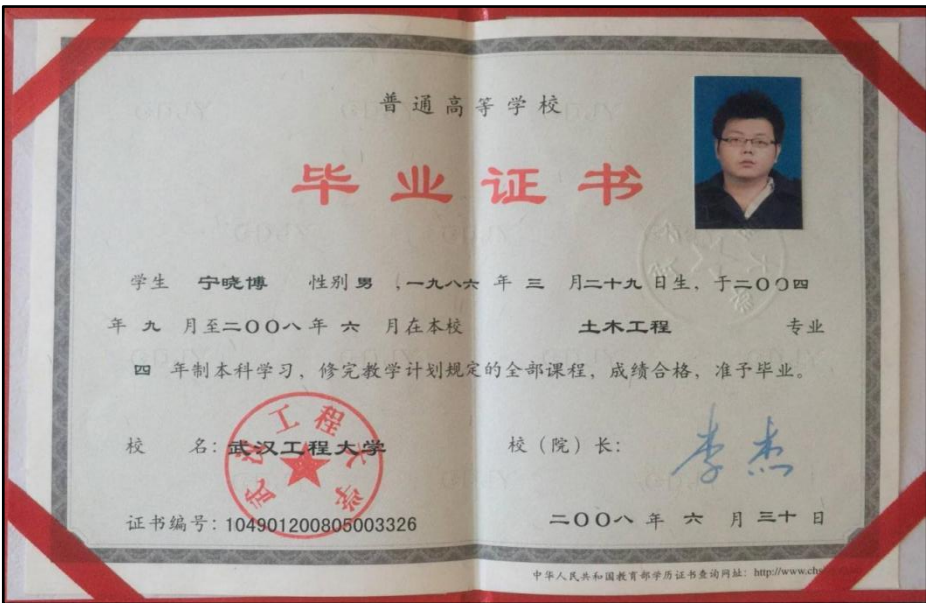 普通高等学校
毕业证书
学生 宁晓博 性别 男 ,一九八六 年 三 月二十九 日生, 于二〇〇四
年 九 月至二〇〇八 年 六 月在本校 土木工程 专业
四 年制本科学习, 修完教学计划规定的全部课程, 成绩合格, 准予毕业。
校 名: 武汉工程大学 校(院)长: 李杰
武汉工程大学
证书编号: 104901200805003326 二〇〇八 年 六 月 三十 日
中华人民共和国教育部学历证书查询网址: http://www.ch